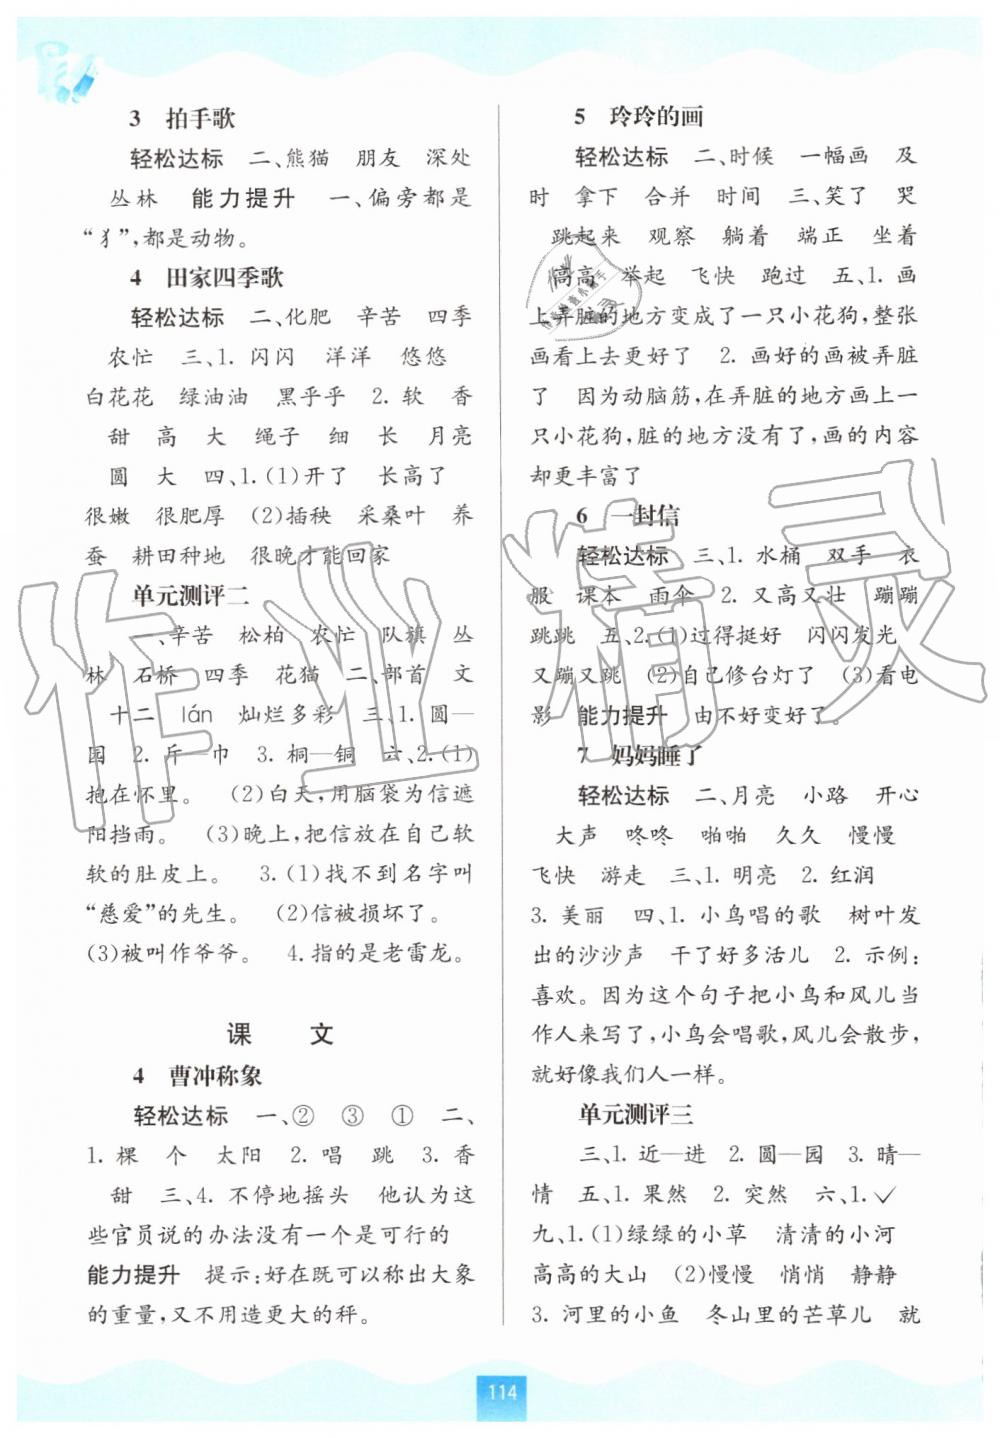 3 拍手歌
轻松达标 二、熊猫 朋友 深处
丛林 能力提升 一、偏旁都是
“犭”,都是动物。
4 田家四季歌
轻松达标 二、化肥 辛苦 四季
农忙 三、1. 闪闪 洋洋 悠悠
白花花 绿油油 黑乎乎 2. 软 香
甜 高 大 绳子 细 长 月亮
圆 大 四、1. (1)开了 长高了
很嫩 很肥厚 (2)插秧 采桑叶 养
蚕 耕田种地 很晚才能回家
单元测评二
一、辛苦 松柏 农忙 队旗 丛
林 石桥 四季 花猫 二、部首 文
十二 lán 灿烂多彩 三、1. 圆—
园 2. 斤—巾 3. 桐—铜 六、2. (1)
抱在怀里。 (2)白天,用脑袋为信遮
阳挡雨。 (3)晚上,把信放在自己软
软的肚皮上。 3. (1)找不到名字叫
“慈爱”的先生。 (2)信被损坏了。
(3)被叫作爷爷。 4. 指的是老雷龙。
课 文
4 曹冲称象
轻松达标 一、② ③ ① 二、
1. 棵 个 太阳 2. 唱 跳 3. 香
甜 三、4. 不停地摇头 他认为这
些官员说的办法没有一个是可行的
能力提升 提示:好在既可以称出大象
的重量,又不用造更大的秤。
5 玲玲的画
轻松达标 二、时候 一幅画 及
时 拿下 合并 时间 三、笑了 哭
跳起来 观察 躺着 端正 坐着
高高 举起 飞快 跑过 五、1. 画
上弄脏的地方变成了一只小花狗,整张
画看上去更好了 2. 画好的画被弄脏
了 因为动脑筋,在弄脏的地方画上一
只小花狗,脏的地方没有了,画的内容
却更丰富了
6 一封信
轻松达标 三、1. 水桶 双手 衣
服 课本 雨伞 2. 又高又壮 蹦蹦
跳跳 五、2. (1)过得挺好 闪闪发光
又蹦又跳 (2)自己修台灯了 (3)看电
影 能力提升 由不好变好了。
7 妈妈睡了
轻松达标 二、月亮 小路 开心
大声 咚咚 啪啪 久久 慢慢
飞快 游走 三、1. 明亮 2. 红润
3. 美丽 四、1. 小鸟唱的歌 树叶发
出的沙沙声 干了好多活儿 2. 示例:
喜欢。因为这个句子把小鸟和风儿当
作人来写了,小鸟会唱歌,风儿会散步,
就好像我们人一样。
单元测评三
三、1. 近—进 2. 圆—园 3. 晴—
情 五、1. 果然 2. 突然 六、1. ✓
九、1. (1)绿绿的小草 清清的小河
高高的大山 (2)慢慢 悄悄 静静
3. 河里的小鱼 冬山里的芒草儿 就
114
作业精灵